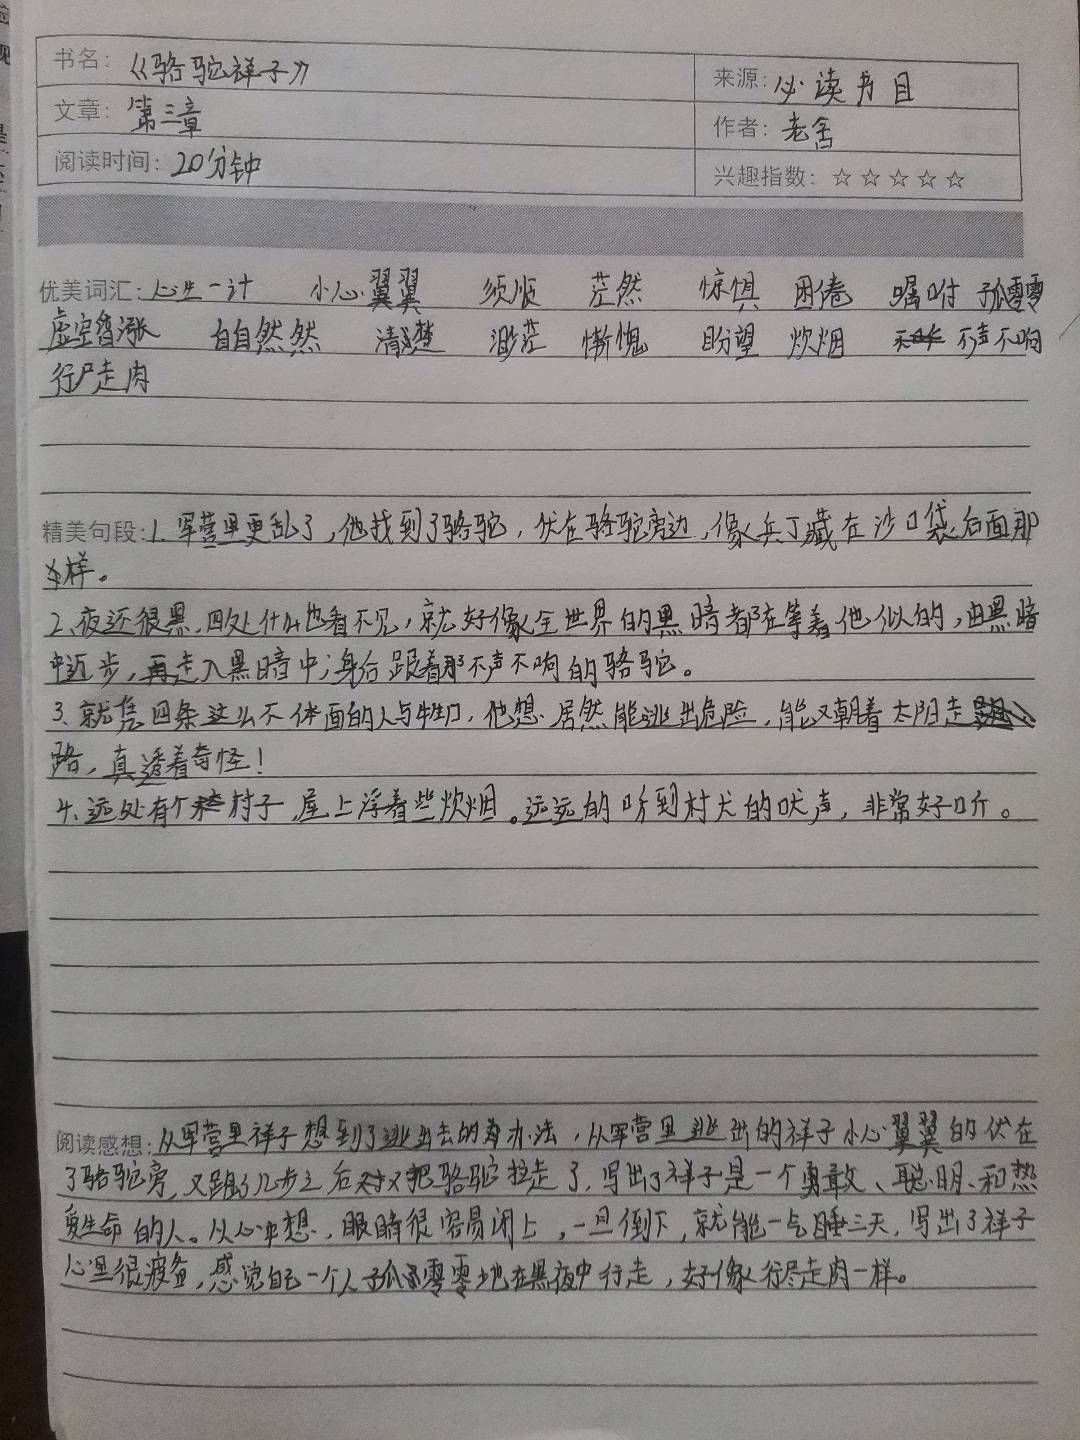 书名：《骆驼祥子》
来源：必读书目
文章：第三章
作者：老舍
阅读时间：20分钟
兴趣指数：☆☆☆☆☆
优美词汇：心生一计 小心翼翼 须顺 茫然 惊惧 困倦 嘱咐 孤零零
虚空 自自然然 清楚 渺茫 惭愧 盼望 炊烟 不声不响
行尸走肉
精美句段：1、军营里更乱了，他找到了骆驼，伏在骆驼旁边，像兵丁藏在沙口袋后面那
样。
2、夜还很黑，四处什么也看不见，就好像全世界的黑暗都在等着他似的，由黑暗
中迈步，再走入黑暗中；身后跟着那不声不响的骆驼。
3、就凭四条这么不体面的人与牲口，他想，居然能逃出危险，能又朝着太阳走
路，真透着奇怪！
4、远处有个村子，屋上浮着些炊烟。远远的听到村犬的吠声，非常好听。
阅读感想：从军营里祥子想到了逃出去的办法，从军营里逃出的祥子小心翼翼的伏在
了骆驼旁，又跑了几步之后又把骆驼拉走了，写出了祥子是一个勇敢、聪明、和热
爱生命的人。从心中想，眼睛很容易闭上，一旦倒下，就能一气睡三天，写出了祥子
心里很疲惫，感觉自己一个人孤零零地在黑夜中行走，好像行尽走肉一样。